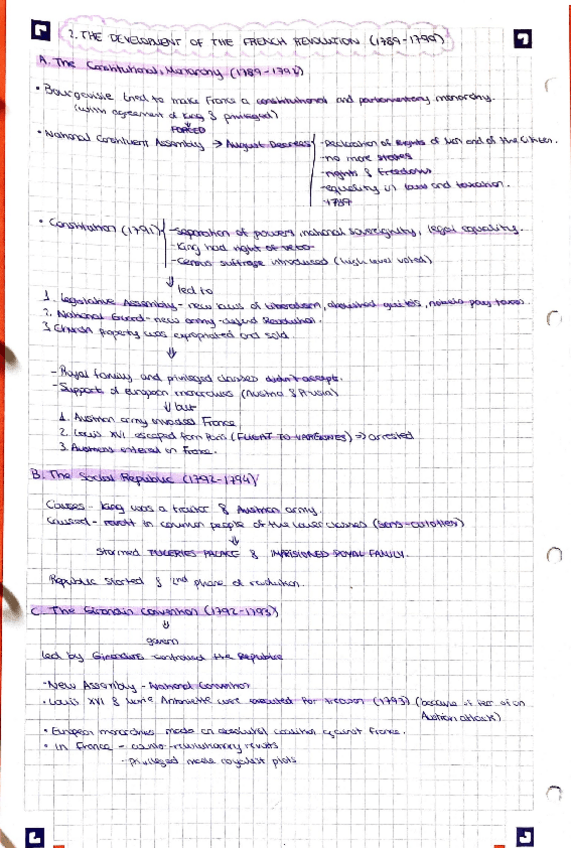 2. THE DEVELOPMENT OF THE FRENCH REVOLUTION (1789-1799)
A. The Constitutional Monarchy (1789-1792)
• Bourgeoisie tried to make France a constitutional and parliamentary monarchy.
(with agreement of king & privileged)
FORCED
• National Constituent Assembly → August Decrees
- Declaration of Rights of Man and of the Citizen.
- no more
- rights & freedoms
- equality in laws and taxation.
- 1789
• Constitution (1791)
- separation of powers, national sovereignity, legal equality.
- King had right of veto
- Census suffrage introduced (high level voted)
↓ led to
1. Legislative Assembly - new laws of liberalism, abolished guilds, nobels pay taxes.
2. National Guard - new army - defend Revolution.
3. Church property was expropiated and sold.
- Royal family and privileged classes didn't accept.
- Supports of european monarchies (Austria & Prussia)
↓ but
1. Austrian army invaded France
2. Louis XVI escaped from Paris (FLIGHT TO VARENNES) ⇒ arrested
3. Austrians entered in France.
B. The Social Republic (1792-1794)
Causes - king was a traitor & Austrian army.
Caused - revolt in common people of the lower classes (sans-culottes)
Stormed TUILERIES PALACE & IMPRISIONED ROYAL FAMILY.
Republic started & 2nd phase of revolution.
C. The Girondin Convention (1792-1793)
govern
led by Girondins - controlled the Republic
- New Assembly - National Convention
• Louis XVI & Marie Antoinette were executed for treason (1793) (because of fear of an
Austrian attack)
• European monarchies made an absolutist coalition against France.
• in France - counter-revolutionary revolts
- privileged made royalist plots